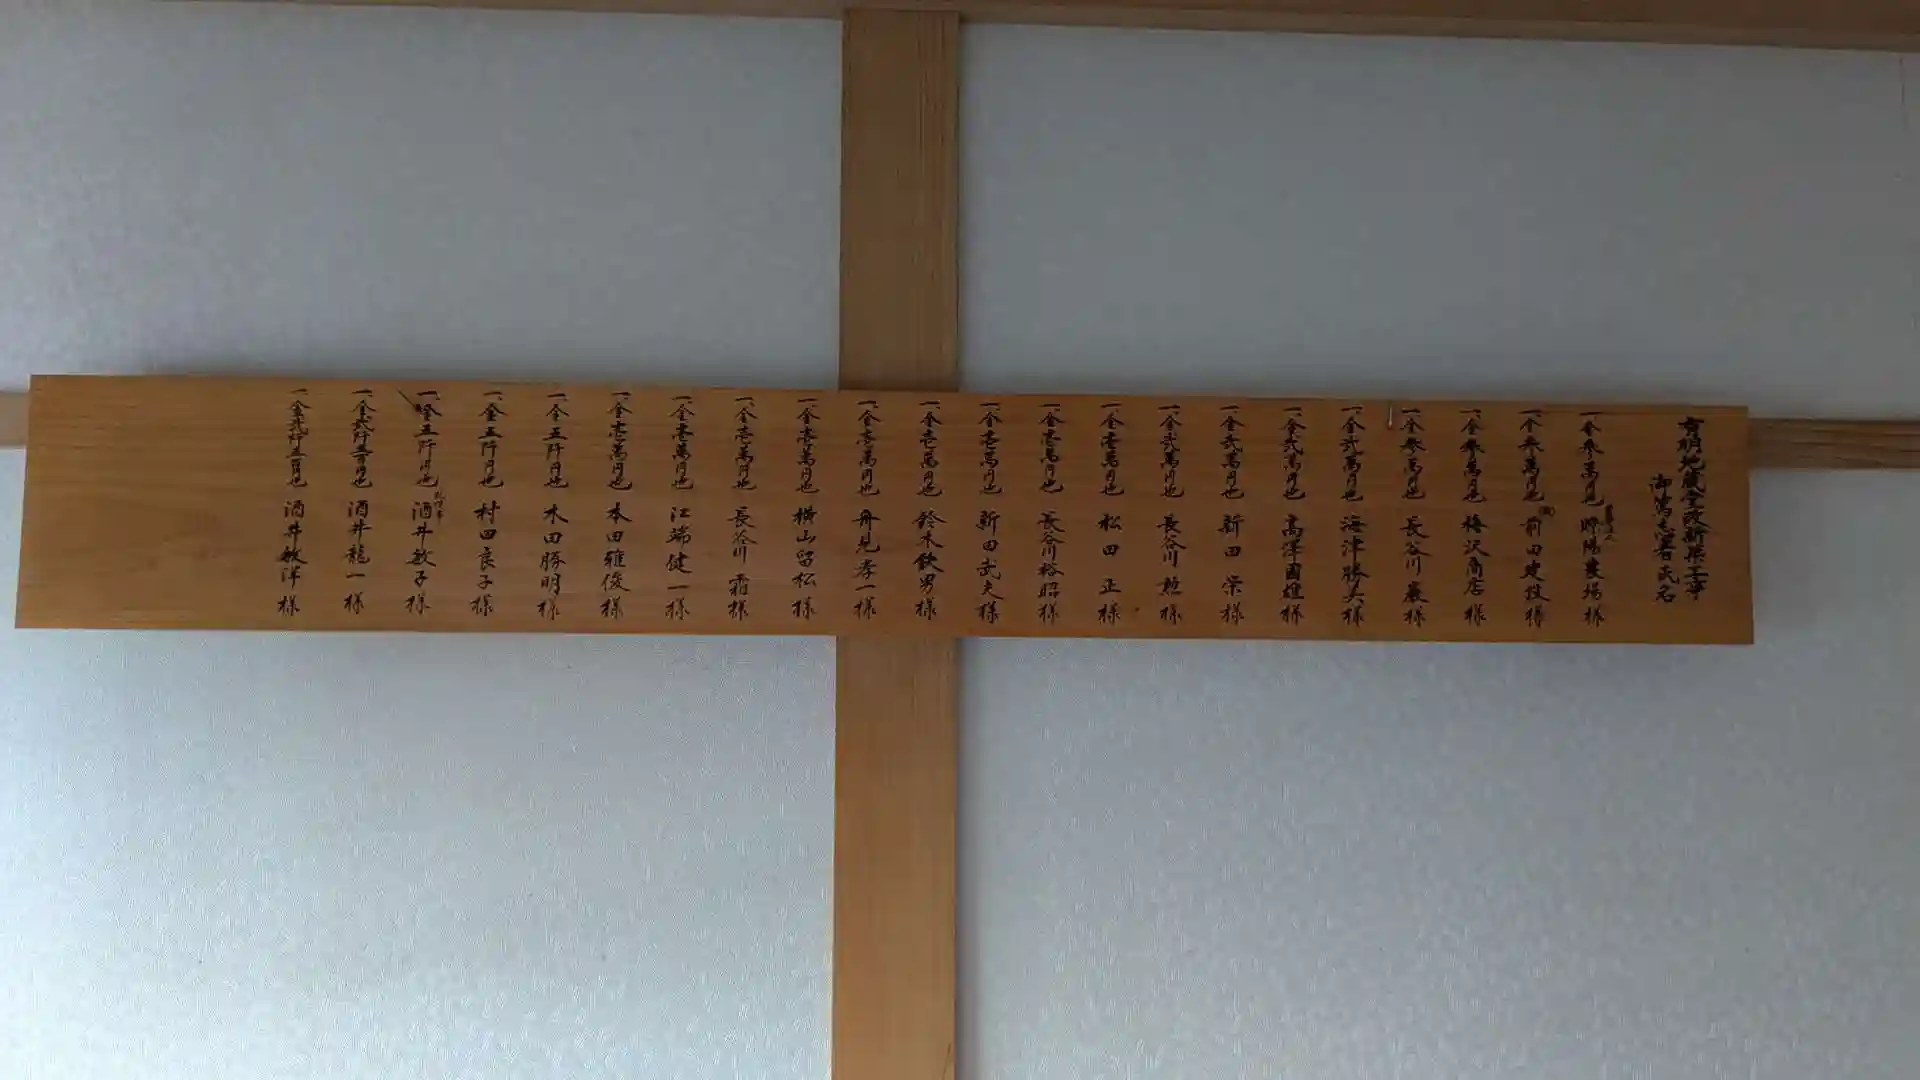 有明地蔵堂改新築工事
御篤志者氏名
一、金参萬円也 農場様
一、金参萬円也 ㈱前田建設様
一、金参萬円也 梅沢商店様
一、金参萬円也 長谷川 巌様
一、金弐萬円也 海津勝美様
一、金弐萬円也 高澤國雄様
一、金弐萬円也 新田 栄様
一、金弐萬円也 長谷川 勲様
一、金壱萬円也 松田 正様
一、金壱萬円也 長谷川裕昭様
一、金壱萬円也 新田武夫様
一、金壱萬円也 鈴木欽男様
一、金壱萬円也 舟見孝一様
一、金壱萬円也 横山留松様
一、金壱萬円也 長谷川 霜様
一、金壱萬円也 江端健一様
一、金壱萬円也 本田雅俊様
一、金五阡円也 木田勝明様
一、金五阡円也 村田良子様
一、金五阡円也 酒井敏子様
一、金弐阡五百円也 酒井龍一様
一、金弐阡五百円也 酒井敏洋様